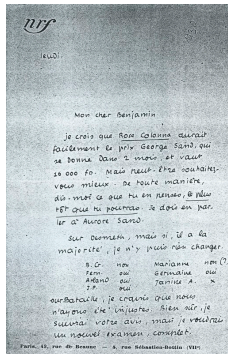 nrf
jeudi.
Mon cher Benjamin
je crois que Rose Colonna aurait
facilement le prix George Sand, qui
se donne dans 2 mois, et vaut
10 000 fr. Mais peut-être souhaitez-
vous mieux. De toute manière,
dis-moi ce que tu en penses, le plus
tôt que tu pourras. Je dois en par-
ler à Aurore Sand.
Sur Desmeth, mais si, il a la
majorité, je n'y puis rien changer.
B.C. non Marianne non (?)
Pern. oui Germaine oui
Arland oui Janine A. x
J.P. oui
sur Batache, je crains que nous
n'ayons été injustes. Bien sûr, je
suivrai votre avis, mais je voudrais
un nouvel examen, complet.
Paris, 43, rue de Beaune — 5, rue Sébastien-Bottin (VIIe)